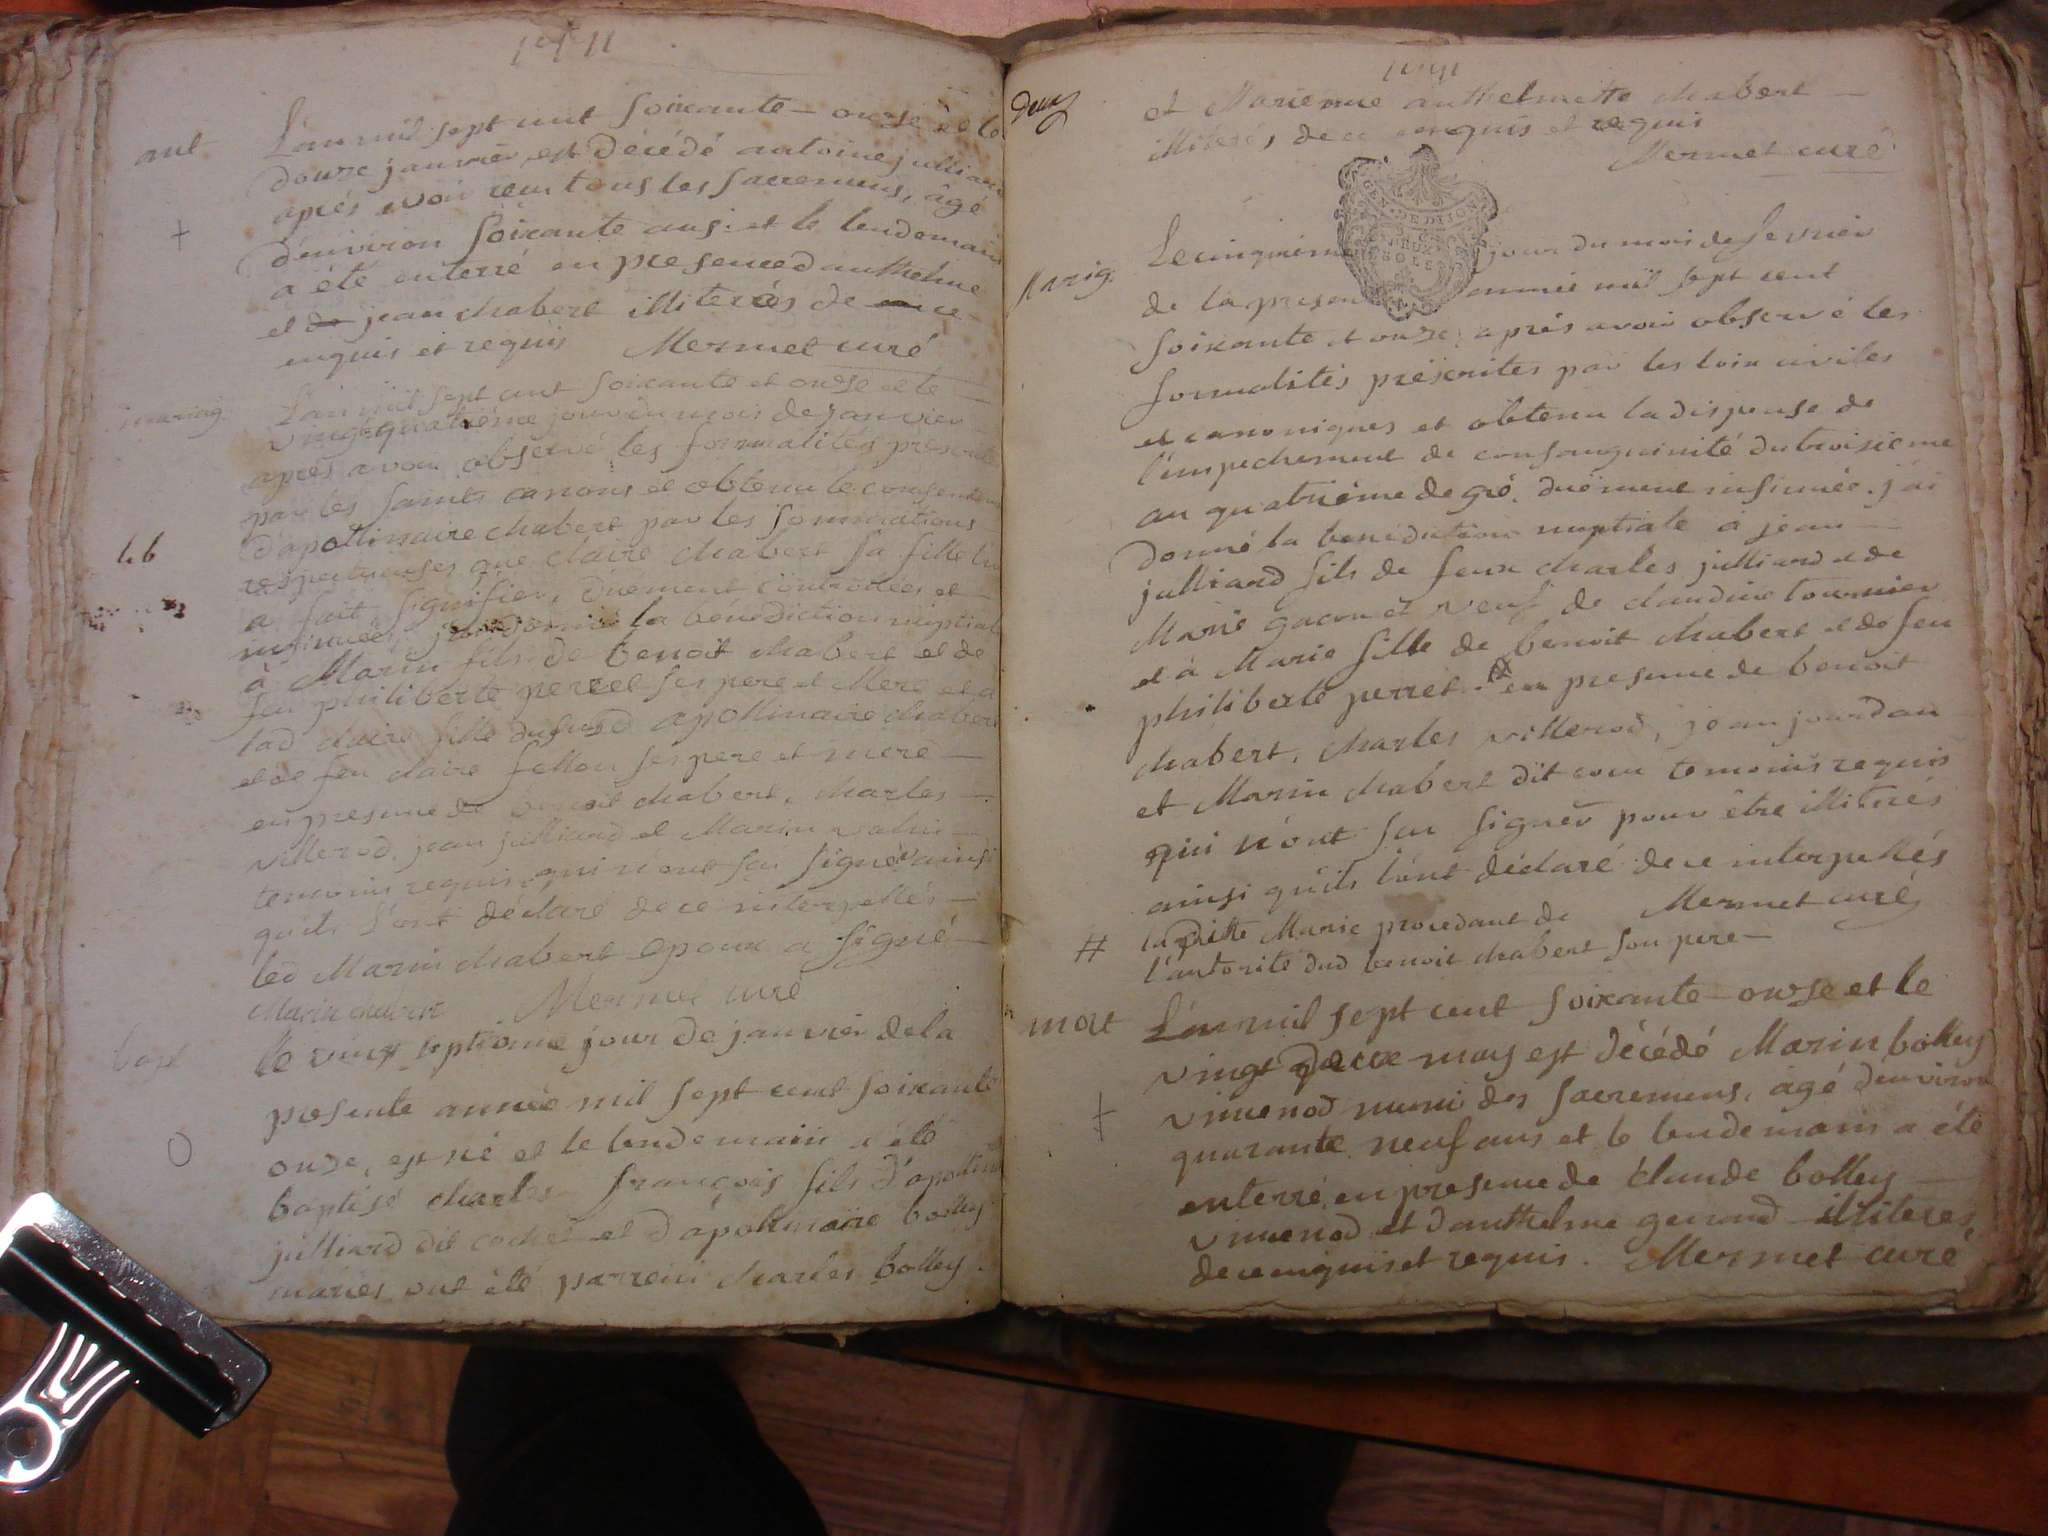 1771
L'an mil sept cent soixante-onze et le
ant
douze janvier est décédé antoine julliard
après avoir reçu tous les sacremens, âgé
d'environ soixante ans. et le lendemain
a été enterré en presence d'anthelme
et de jean chabert illiterés de ce
enquis et requis Mermet curé
mariag
L'an mil sept cent soixante et onze et le
vingt quatrième jour du mois de janvier
après avoir observé les formalités prescrites
par les saints canons et obtenu le consentement
d'apollinaire chabert par les sommations
respectueuses que claire chabert sa fille lui
a fait signifier, duement controllées et
insinuées, j'ai donné la bénédiction nuptiale
à Marin fils de benoit chabert et de
feu philiberte perret ses pere et Mere et à
lad claire fille dususd apollinaire chabert
et de feu claire fellon ses pere et mere
en presence de benoit chabert, charles
villerod, jean julliard et Marin
temoins requis qui n'ont sçu signer ainsi
qu'ils l'ont déclaré de ce interpellés
led Marin chabert epoux a signé
Marin chabert Mermet curé
bapt
le vingt septieme jour de janvier de la
presente année mil sept cent soixante
onze, est né et le lendemain a été
baptisé charles françois fils d'apollinaire
julliard dit cochet et d'apolinaire bolley
mariés ont été parrein charles bolley.
1771
deux
et Marienne anthelmette chabert
illiterés de ce enquis et requis
Mermet curé
GEN. DE DIJON
DEUX
SOLS
Mariag.
Le cinquieme jour du mois de fevrier
de la presente année mil sept cent
soixante et onze, après avoir observé les
formalités préscrites par les loix civiles
et canoniques et obtenu la dispense de
l'empechement de consanguinité du troisieme
au quatrième degré. duëment insinuée. j'ai
donné la benediction nuptiale à jean
julliard fils de feux charles julliard et de
Marie gacon et veuf de claudine tournier
et à Marie fille de benoit chabert et de feu
philiberte perret # en presence de benoit
chabert, charles villerod, jean jourdan
et Marin chabert dit temoins requis
qui n'ont sçu signer pour être illiterés
ainsi qu'ils l'ont déclaré de ce interpellés
# la ditte Marie procedant de Mermet curé
l'autorité dud benoit chabert son pere
mort
L'an mil sept cent soixante-onze et le
vingt deux may est décédé Marin bolley
vincenod muni des sacremens, âgé d'environ
quarante neuf ans et le lendemain a été
enterré, en presence de claude bolley
vincenod et d'anthelme genand illiterés
de ce enquis et requis. Mermet curé